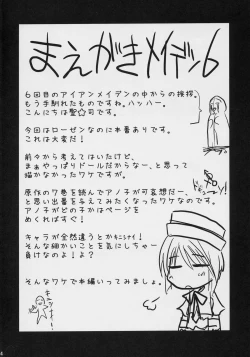 まえがきメイデン6
6回目のアイアンメイデンの中からの挨拶。
もう手馴れたものですね。ハッハー。
こんにちは聖☆司です。
今回はローゼンなのに本番ありです。
これは大変だ!
前々から考えてはいたけど、
まぁやっぱりドールだからなー、と思って
描かなかったワケですが、
原作の7巻を読んでアノ子が可哀想だー、
と思い出番を与えてみたくなったワケなのです。
アノ子がどの子かはページを
めくればすぐ!
キャラが全然違うとかキニシナイ!
そんな細かいことを気にしちゃー
負けなのよ!よ?
そんなワケで本編いってみましょ。